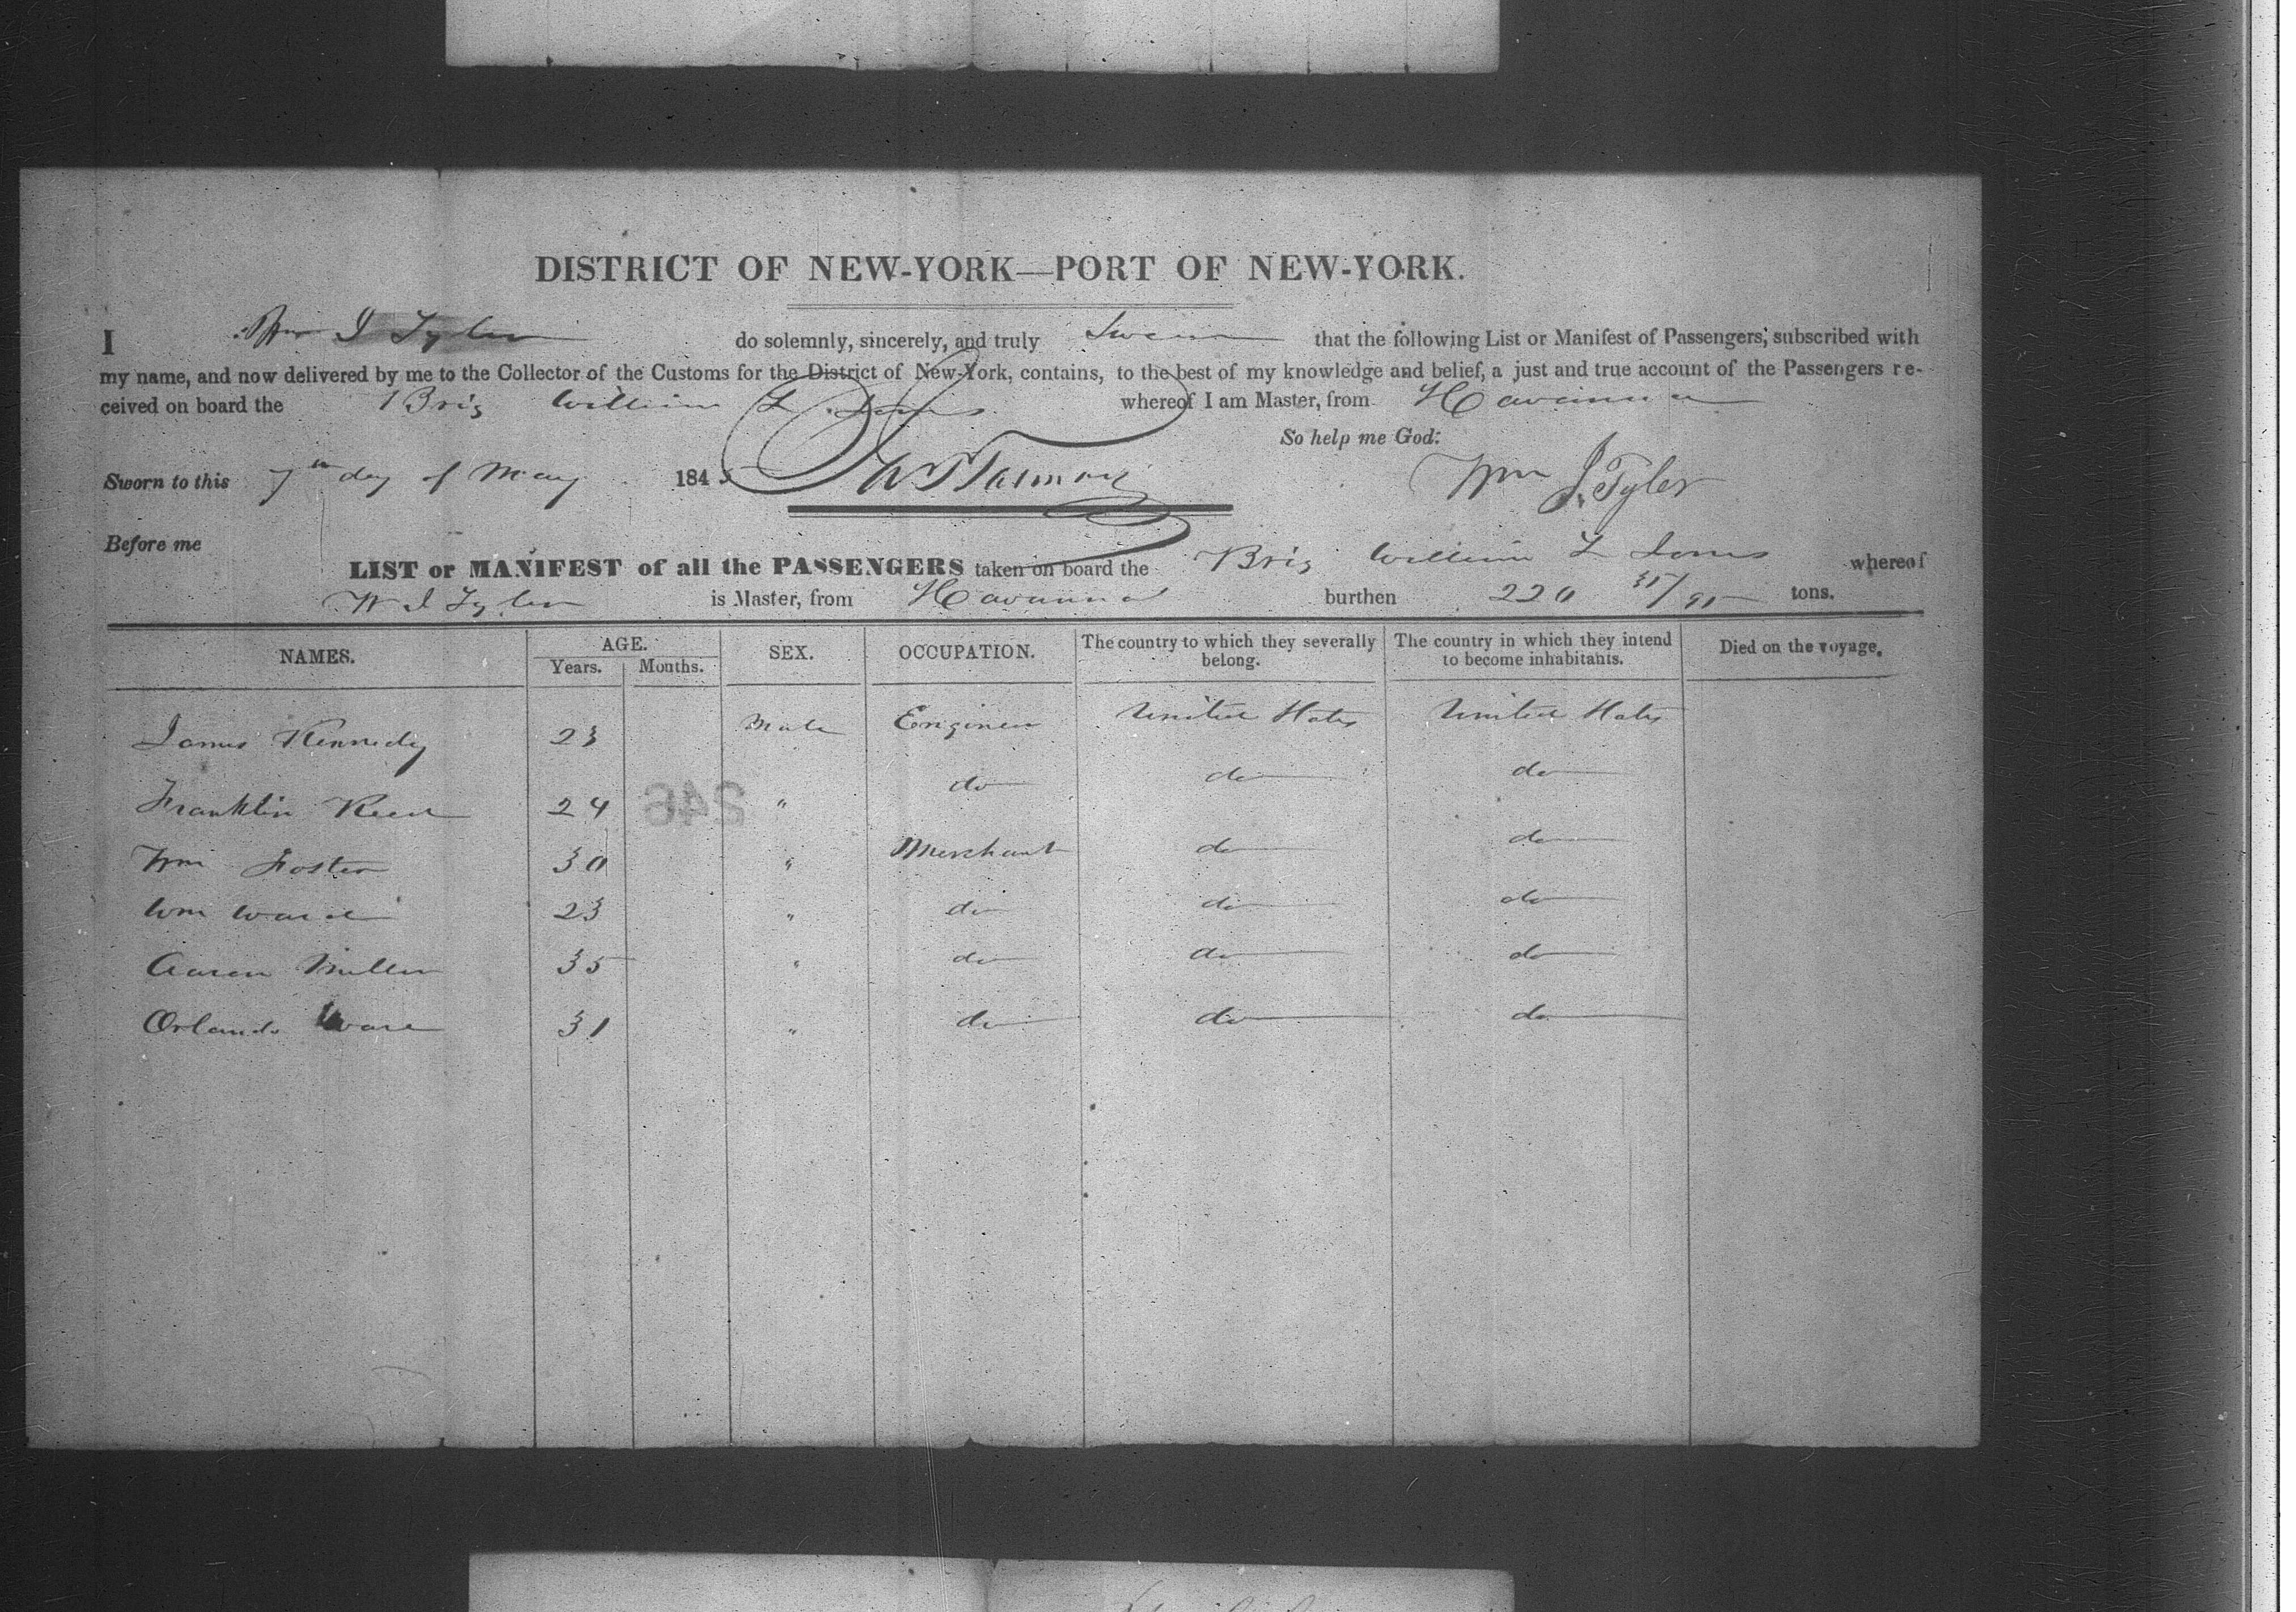 DISTRICT OF NEW-YORK—PORT OF NEW-YORK.
I Wm J Tyler do solemnly, sincerely, and truly Swear that the following List or Manifest of Passengers, subscribed with
my name, and now delivered by me to the Collector of the Customs for the District of New-York, contains, to the best of my knowledge and belief, a just and true account of the Passengers re-
ceived on board the Brig William L Jones whereof I am Master, from Havanna
So help me God:
Sworn to this 7th day of May 1845 Wm J. Tyler
Before me
LIST or MANIFEST of all the PASSENGERS taken on board the Brig William L Jones whereof
W J Tyler is Master, from Havanna burthen 220 35/95 tons.
NAMES. AGE. Years. Months. SEX. OCCUPATION. The country to which they severally belong. The country in which they intend to become inhabitants. Died on the voyage.
James Kennedy 23 Male Engineer United States United States
Franklin Reed 24 " do do do
246
Wm Foster 30 " Merchant do do
Wm Ward 23 " do do do
Aaron Miller 35 " do do do
Orlando Ware 31 " do do do